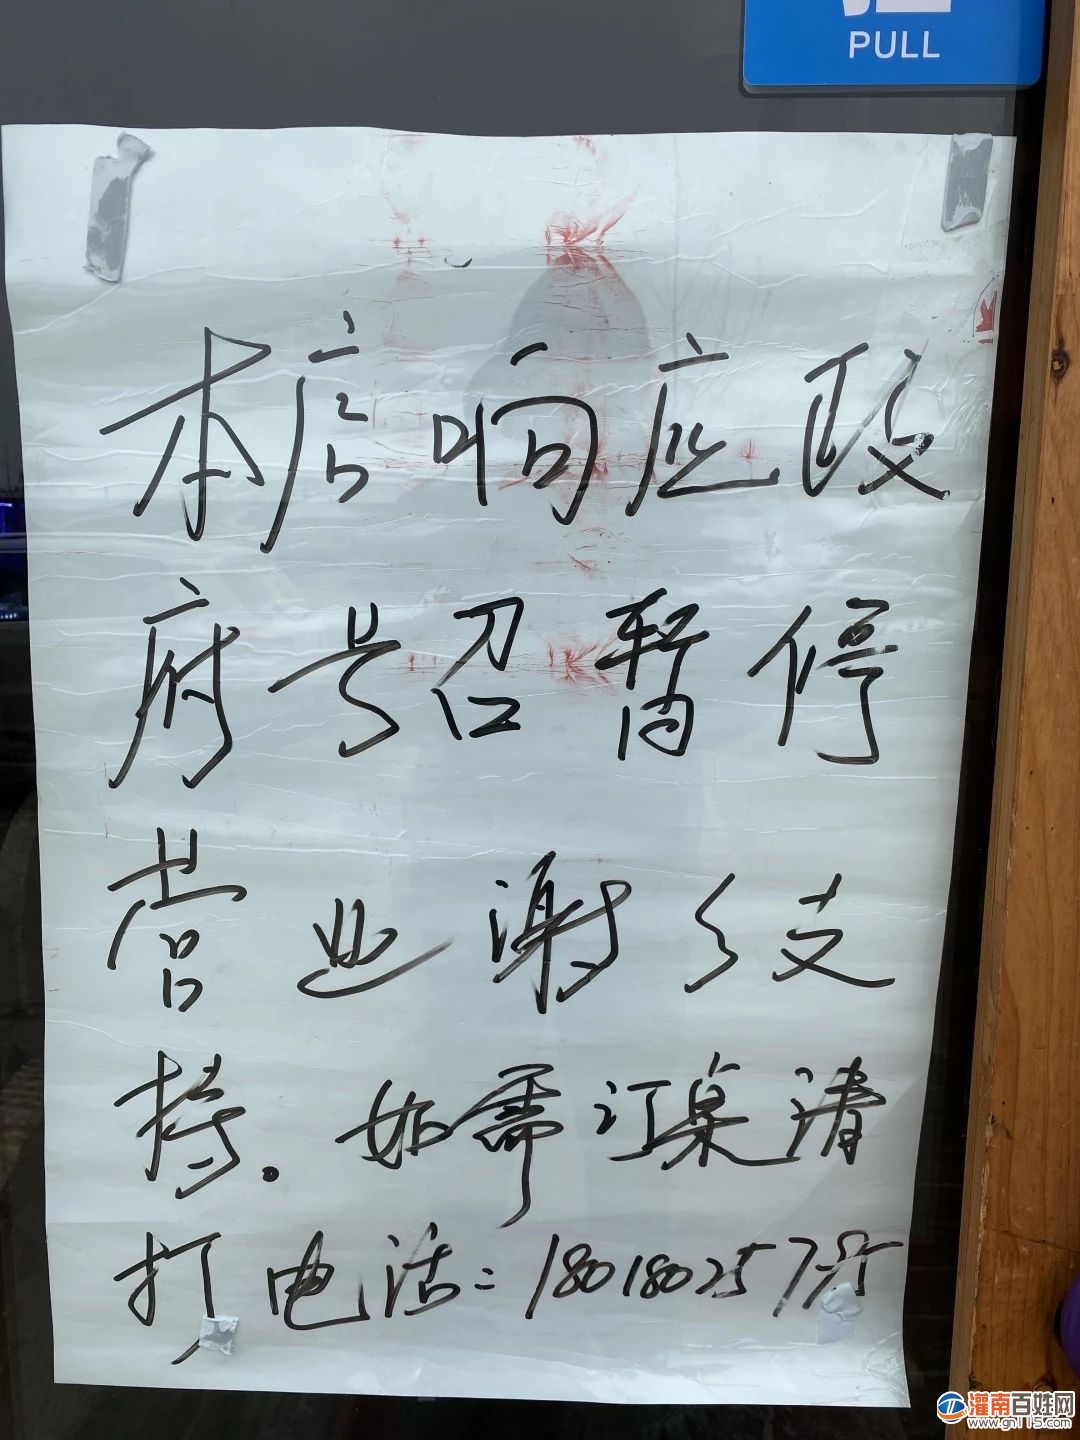 PULL
本店响应政
府号召暂停
营业谢谢支
持。如需订桌请
打电话:
灌南百姓网
www.gn115.com